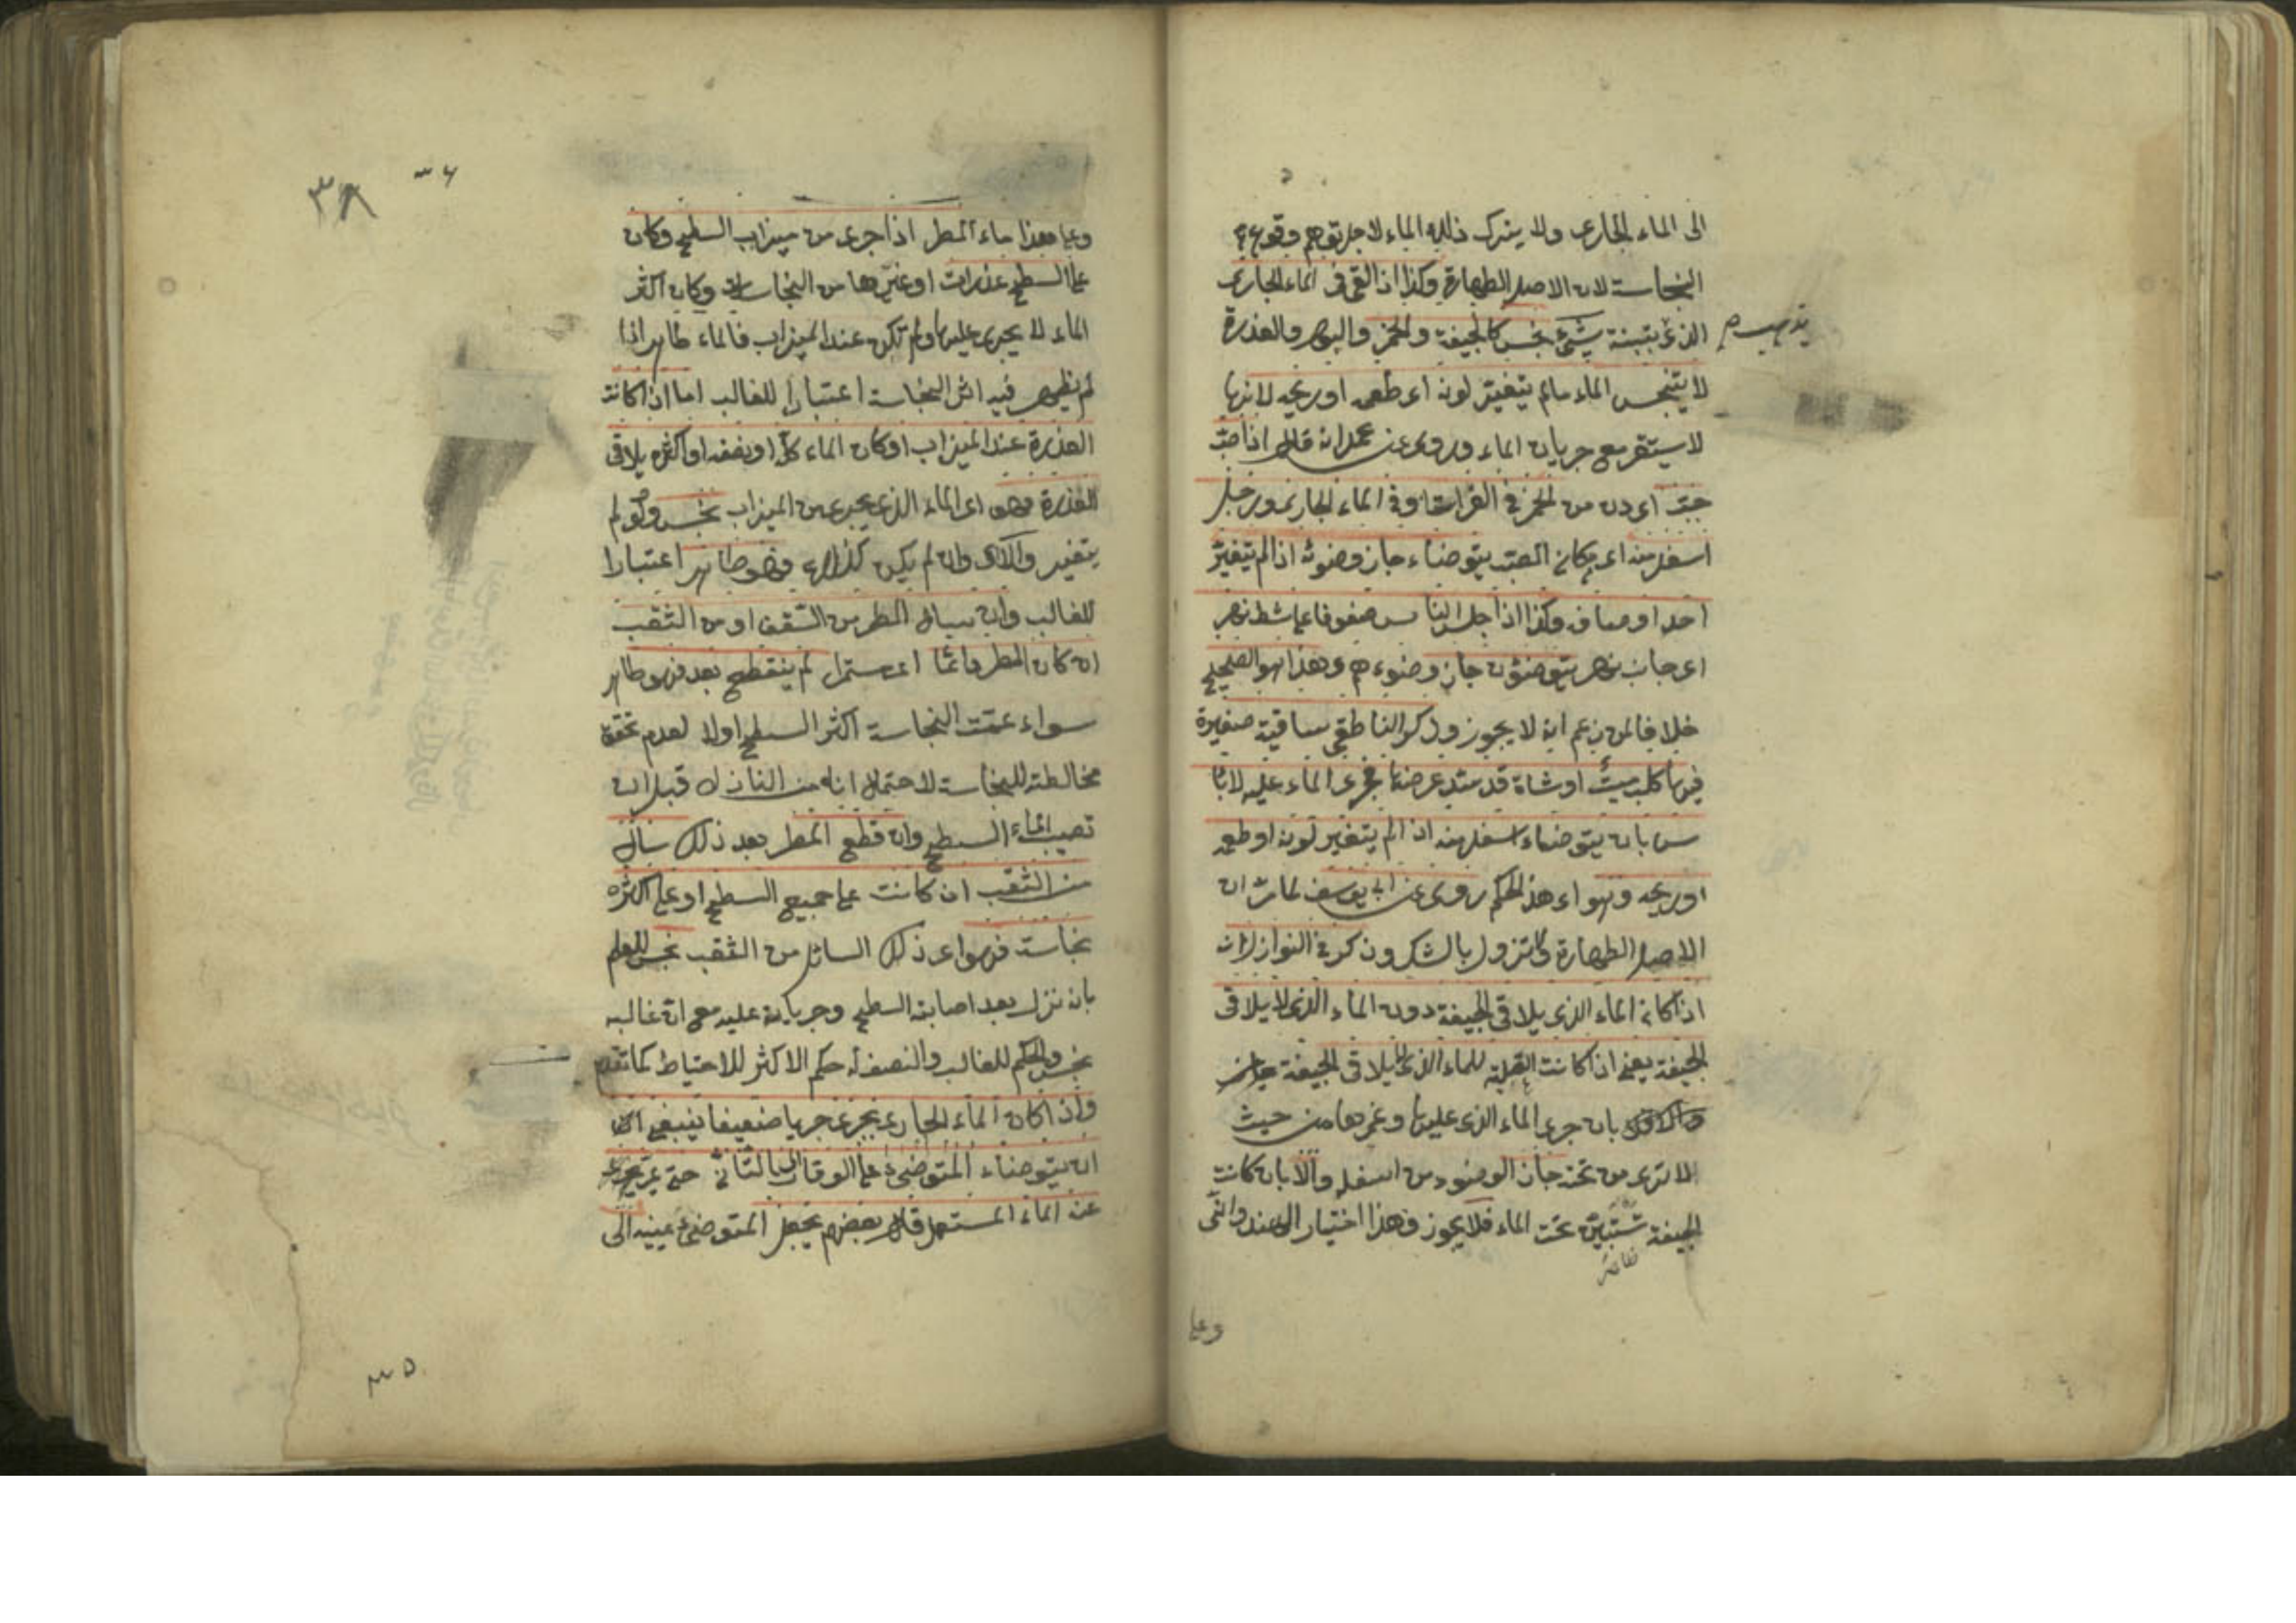 الى الماء الجارى ولا يترك ذلك الماء لاجل توهم وقوع
النجاسة لان الاصل الطهارة وكذا اذا القى فى الماء الجارى
الذى بتبنة شئ نجس كالجيفة والخمر والبول والعذرة
لا يتنجس الماء مالم يتغير لونه اى طعمه او ريحه لانها
لا يستقر مع جريان الماء وروى عن محمد انه قال اذا صب
حب اى دن من الخمر فى الفرات او فى الماء الجارى ورجل
اسفل منه اى مكان الصب يتوضاء جاز وضوئه اذا لم يتغير
احد اوصافه وكذا اذا جلس الناس صفوفا على شط نهر
اى جانب نهر يتوضئون جاز وضوءهم وهذا هو الصحيح
خلافا لمن زعم انه لا يجوز وذكر الناطقى ساقية صغيرة
فيها كلب ميت او شاة قد سد عرضها فجرى الماء عليه لا بأ
س بان يتوضاء اسفل منه اذا لم يتغير لونه او طعمه
او ريحه وهو اى هذا الحكم روى عن ابى يوسف لما مر ان
الاصل الطهارة لا تزول بالشك وذكر فى النوازل ان
اذا كان الماء الذى يلاقى الجيفة دون الماء الذى لا يلاقى
الجيفة يعنى اذا كانت الغلبة للماء الذى لا يلاقى الجيفة جاز
بان جرى الماء الذى عليها وغمرها من حيث
لا ترى من تحته جاز الوضوء من اسفله والا بان كانت
الجيفة تستبين تحت الماء فلا يجوز وهذا اختيار الهندوانى
وعلى
وعلى هذا ماء المطر اذا جرى من ميزاب السطح وكان
على السطح عذرات او غيرها من النجاسات وكان اكثر
الماء لا يجرى عليها ولم تكن عند الميزاب فالماء طاهر اذا
لم يظهر فيه اثر النجاسة اعتبارا للغالب اما اذا كانت
العذرة عند الميزاب او كان الماء كله او نصفه او اكثره يلاقى
العذرة فهو اى الماء الذى يجرى من الميزاب نجس ولو لم
يتغير والا اى وان لم يكن كذلك فهو طاهر اعتبارا
للغالب وان سال المطر من السقف او من الثقب
ان كان المطر دائما اى مستمرا لم ينقطع بعد فهو طاهر
سواء عمت النجاسة اكثر السطح اولا لعدم تحقق
مخالطته للنجاسة لاحتمال انه من النازل قبل ان
تصيب الماء السطح وان قطع المطر بعد ذلك سال
من الثقب ان كانت على جميع السطح او على اكثره
نجاسة فهو اى ذلك السائل من الثقب نجس للعلم
بان نزل بعد اصابته السطح وجريانه عليه مع ان غالبه
نجس والحكم للغالب والنصف له حكم الاكثر للاحتياط كما تقدم
واذا كان الماء الجارى يجرى جريا ضعيفا ينبغى
ان يتوضاء المتوضئ على الوقار اى بالتأنى حتى يمر
عنه الماء المستعمل قال بعضهم يجعل المتوضئ يمينه الى